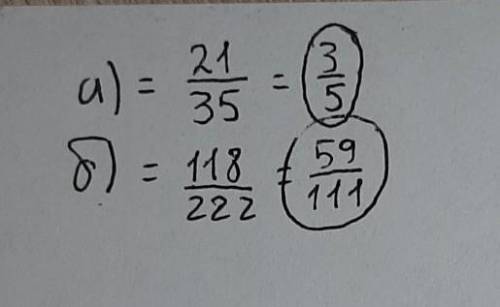 а) = 21/35 = 3/5
б) = 118/222 = 59/111